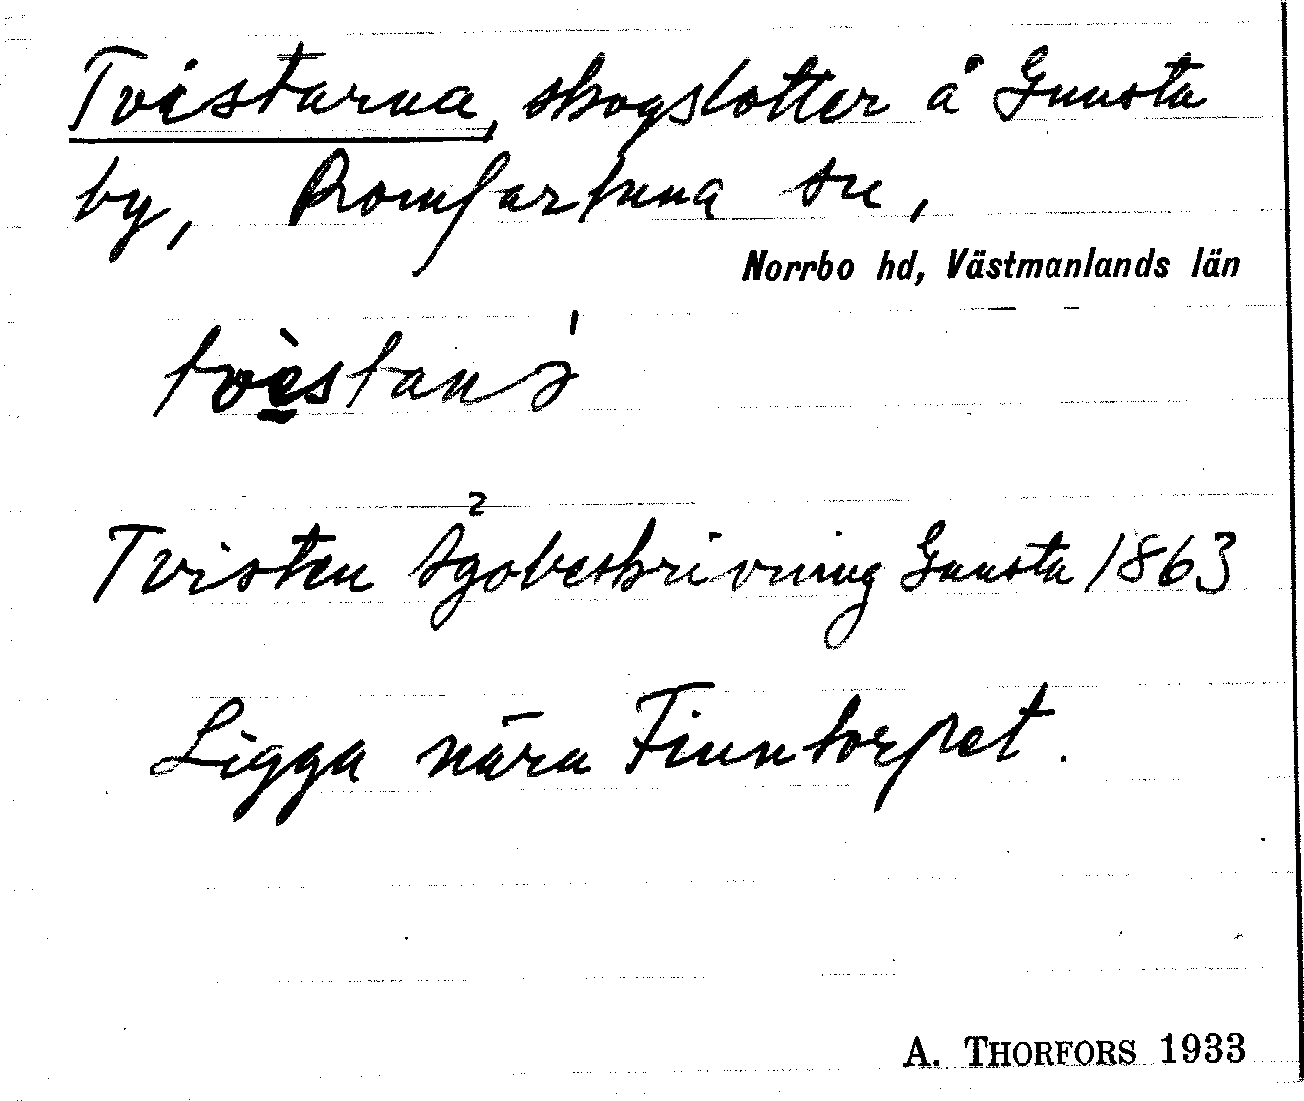 Tvistarna, skogslotter å Gunsta
by, Romfartuna sn,
Norrbo hd, Västmanlands län
Tvisten Ägobeskrivning Gunsta 1863
Ligga nära Finntorpet.
A. THORFORS 1933